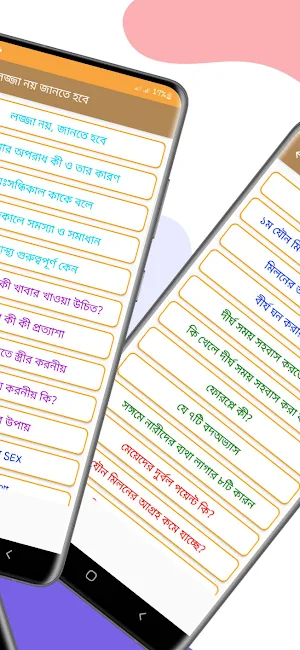 লজ্জা নয় জানতে হবে
লজ্জা নয়, জানতে হবে
অপরাধ কী ও তার কারণ
বয়ঃসন্ধিকাল কাকে বলে
সমস্যা ও সমাধান
গুরুত্বপূর্ণ কেন
কী খাবার খাওয়া উচিত?
কী কী প্রত্যাশা
স্ত্রীর করনীয়
করনীয় কি?
উপায়
SEX
১ম যৌন
মিলনের
বীর্য ঘন করার
দীর্ঘ সময় সহবাস করতে
কি খেলে দীর্ঘ সময় সহবাস করা
ফোরপ্লে কী?
যে ৭টি বদঅভ্যাস
সঙ্গমে নারীদের ব্যথা লাগার ৮টি কারন
মেয়েদের দুর্বল পয়েন্ট কি?
যৌন মিলনের আগ্রহ কমে যাচ্ছে?